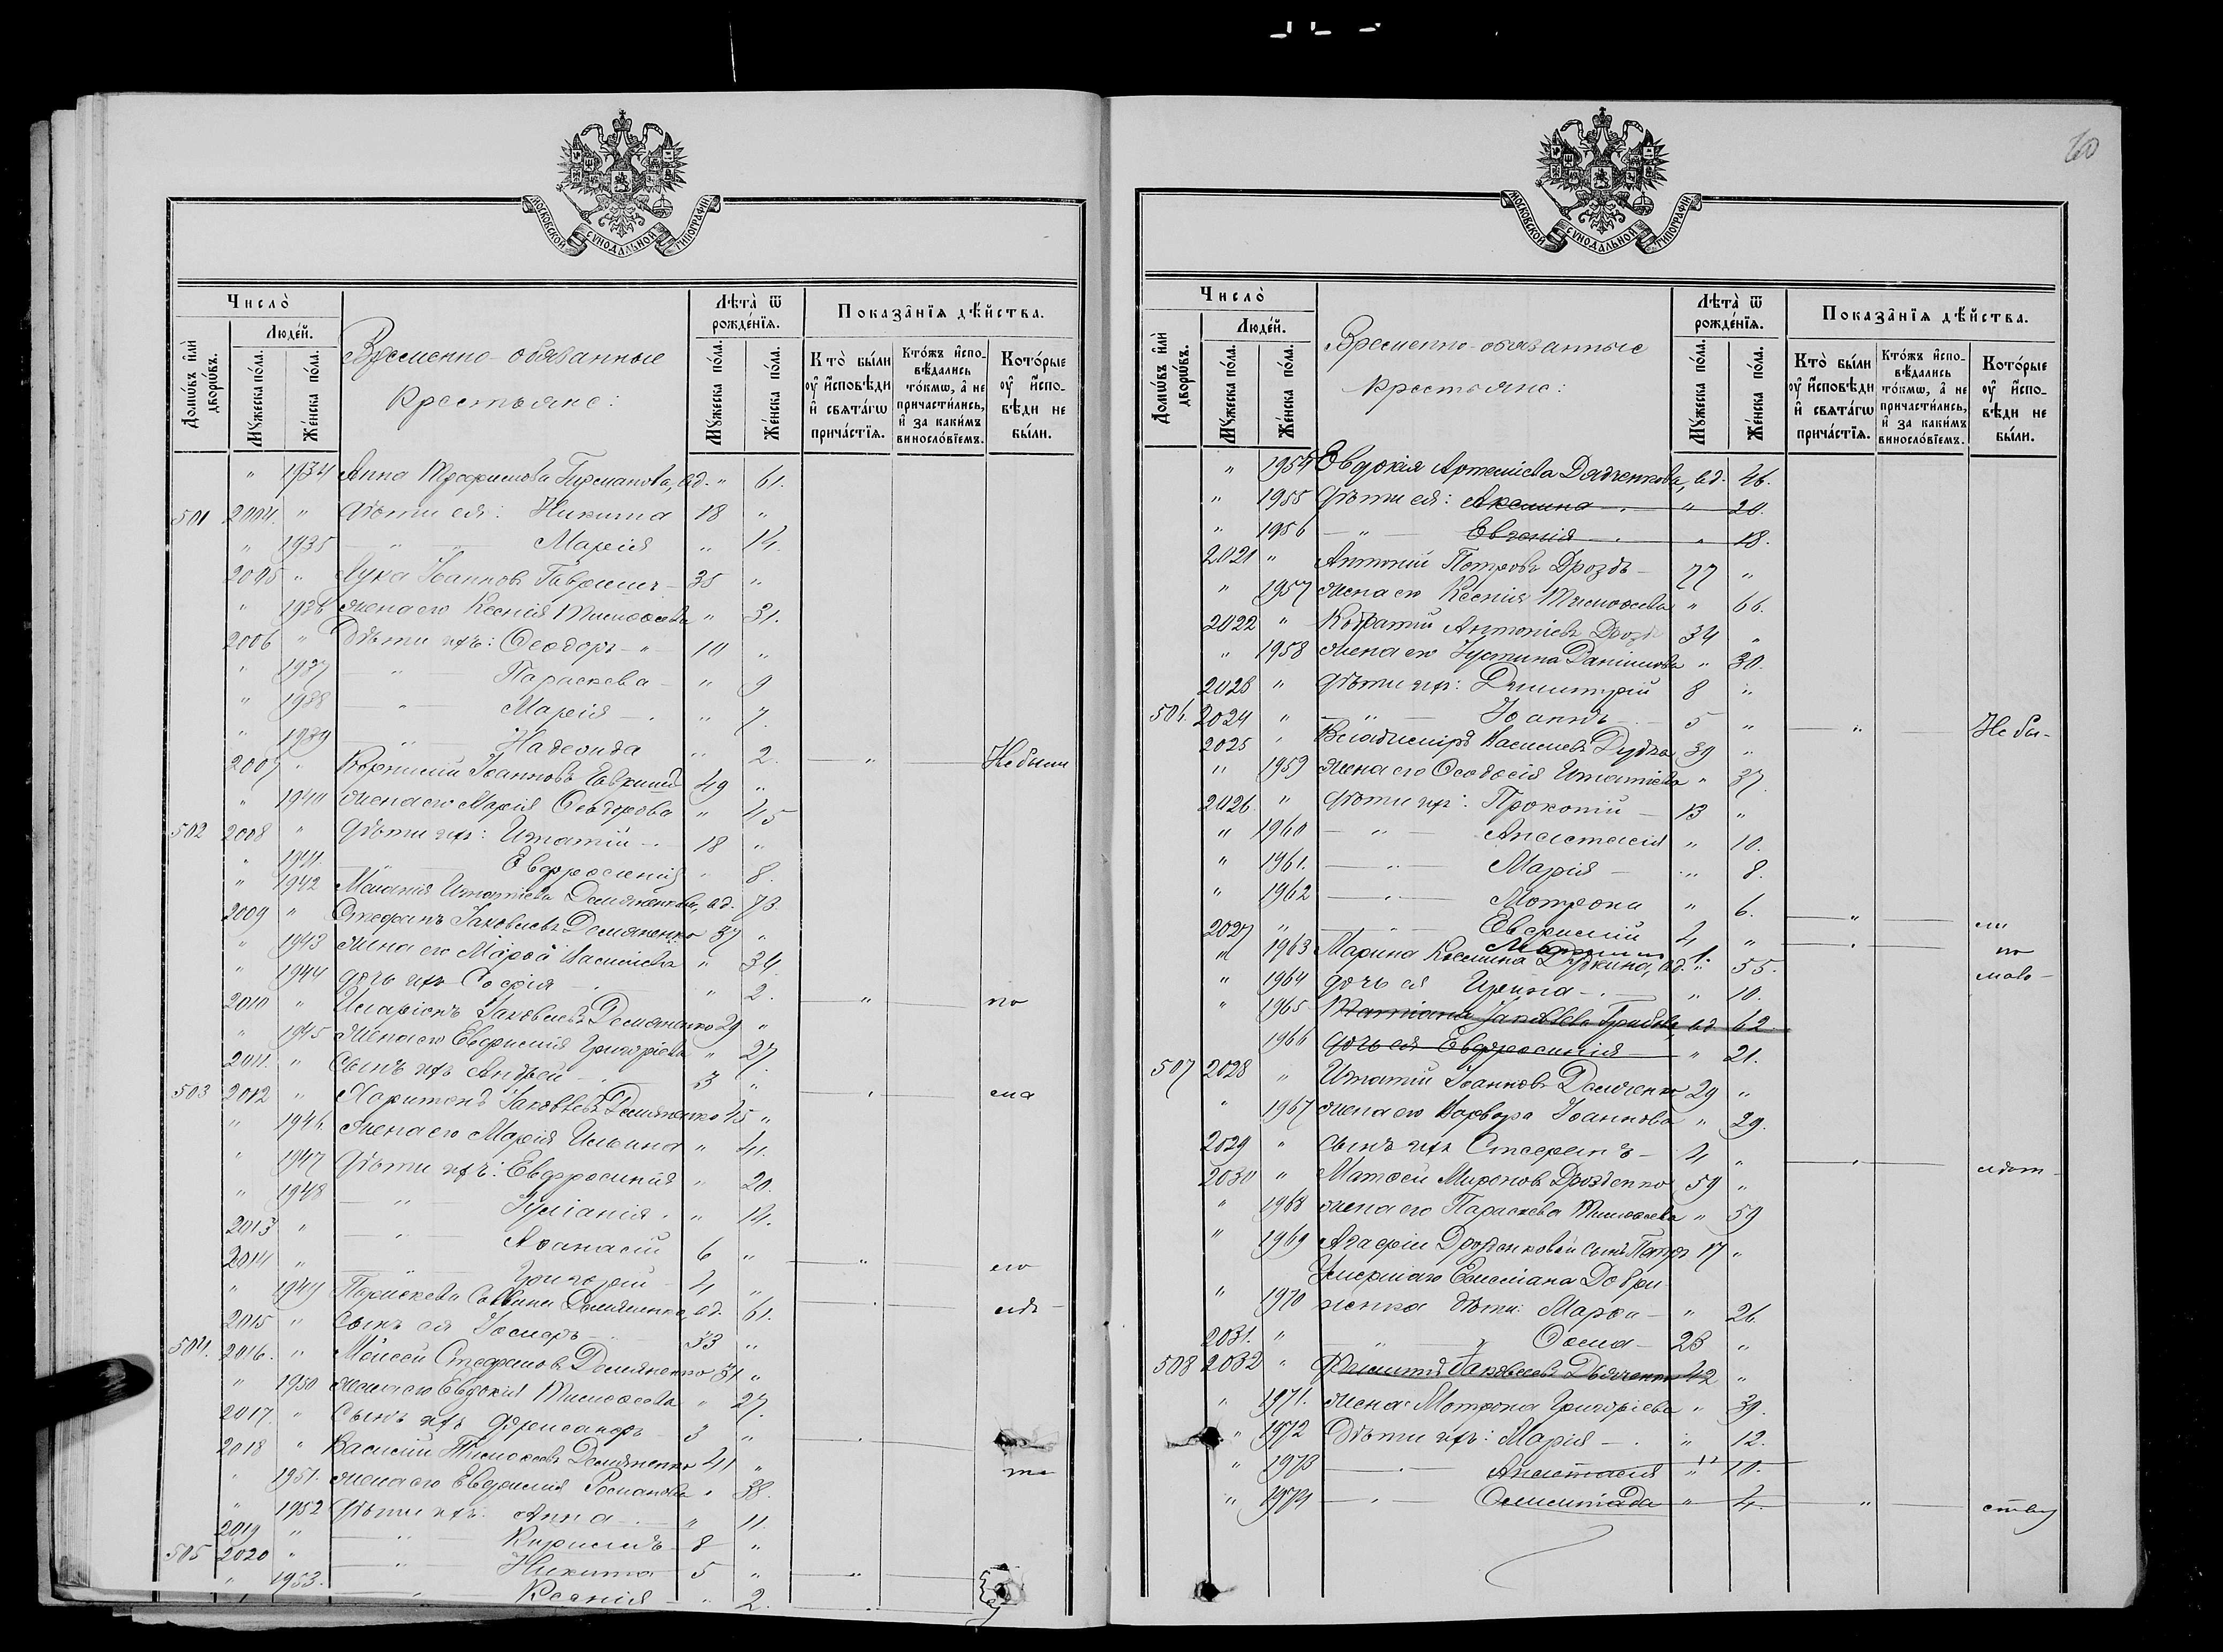 МОСКОВСКОЙ СѴНОДАЛЬНОЙ ТИПОГРАФІИ
Число̀
Людéй.
Домѡ́въ и҆лѝ дворѡ́въ.
Мꙋ́жеска по́ла.
Же́нска по́ла.
Временно-обязанные
крестьяне:
Лѣта̀ ѿ рожде́нїѧ.
Мꙋ́жеска по́ла.
Же́нска по́ла.
Показа̑нїѧ дѣ́йства.
Кто̀ бы́ли ᲂу҆ и҆сповѣ́ди и҆ свѧта́гѡ прича́стїѧ.
Кто́жъ и҆сповѣ́дались то́кмѡ, а҆ не причасти́лись, и҆ за каки́мъ винослóвїемъ.
Кото́рые ᲂу҆ и҆сповѣ́ди не бы́ли.
" 1934 Анна Трофимова вд. " 61.
501 2004. " Дѣти ея: Никита 18 "
" 1935 — " — Марія " 14.
2005 " Лука Іоанновъ 35 "
" 1936 Жена его Ксенія Тимоѳеева " 31.
2006 " Дѣти ихъ: Ѳеодоръ — " 10 "
" 1937 — " — Параскева — " 9
" 1938 — " — Марія — " 7.
" 1939 — " — Надежда " 2. — " — Не были
2007 " Іоанновъ 49 "
" 1940 Жена его Марія Ѳеодорова " 45
502 2008 " Дѣти ихъ: Игнатій — 18 "
" 1941. Евфросинія " 8.
" 1942 Меланія Игнатіева вд. 73.
2009 " Стефанъ Іаковлевъ Демяненко 37 "
" 1943 Жена его Марѳа Василіева " 34.
" 1944 дочь ихъ Софія — " 2. — " — по
2010 " Иларіонъ Іаковлевъ Демяненко 29 "
" 1945 Жена его Евфимія Григоріева " 27.
2011. " Сынъ ихъ Андрей — 3 "
503 2012 " Харитонъ Іаковлевъ Демяненко 45 "
" 1946 Жена его Марія Ильина " 41.
" 1947 Дѣти ихъ: Евфросинія " 20.
" 1948 — " — Іуліанія " 14.
2013 " — " — Аѳанасій 6 "
2014 " Григорій — 4 "
" 1949 Параскева Саввина вд. 61.
2015 " Сынъ ея 33 "
504. 2016. " Моисей Стефановъ Демяненко 31 "
" 1950 Жена его Евдокія Тимоѳеева " 27.
2017. " Сынъ ихъ Александръ 3 "
2018 " Василій Тимоѳеевъ Демяненко 41 "
" 1951. Жена его Евфимія Романова " 38.
" 1952 Дѣти ихъ: Анна — " 11.
2019 " Кириллъ — 8 "
505 2020 " — " — Никита — 5 "
" 1953. — " — Ксенія — " 2.
60
МОСКОВСКОЙ СѴНОДАЛЬНОЙ ТИПОГРАФІИ
Число̀
Людéй.
Домѡ́въ и҆лѝ дворѡ́въ.
Мꙋ́жеска по́ла.
Же́нска по́ла.
Временно-обязанные
крестьяне:
Лѣта̀ ѿ рожде́нїѧ.
Мꙋ́жеска по́ла.
Же́нска по́ла.
Показа̑нїѧ дѣ́йства.
Кто̀ бы́ли ᲂу҆ и҆сповѣ́ди и҆ свѧта́гѡ прича́стїѧ.
Кто́жъ и҆сповѣ́дались то́кмѡ, а҆ не причасти́лись, и҆ за каки́мъ винослóвїемъ.
Кото́рые ᲂу҆ и҆сповѣ́ди не бы́ли.
" 1954 Евдокія Артеміева Дядченкова, вд. 46.
" 1955 Дѣти ея: Акелина — " 20.
" 1956 — " — Евгенія — " 18.
2021 " Антоній Петровъ Дроздъ — 77 "
" 1957 Жена его Ксенія Тимоѳеева " 66.
2022 " Кодратій Антоніевъ Дроздъ 34 "
" 1958 Жена его Іустина Даніилова " 30.
2023 " Дѣти ихъ: Димитрій 8 "
506. 2024 " — " — Іоаннъ 5 " — " — Не бы-
2025 " Владиміръ Василіевъ Дудка 39 "
" 1959 Жена его Ѳеодосія Игнатіева " 37.
2026 " Дѣти ихъ: Прокопій — 13 "
" 1960 — " — Анастасія " 10.
" 1961. — " — Марія — " 8.
" 1962 — " — Мотрона " 6. — " — ли
2027 " Евфимій 4 " — " — по
" 1963 Марина Космина Дудкина, вд. " 55. мало-
" 1964 дочь ея Ирина — " 10.
" 1965 Татіана Іаковлева вд. 62.
1966 дочь ея Евфросинія — " 21.
507 2028 " Игнатій Іоанновъ 29 "
" 1967 Жена его Варвара Іоаннова " 29.
2029 " сынъ ихъ Стефанъ — 4 " — " — лѣт-
2030 " Матѳей Мироновъ Дрозденко 59 "
" 1968 Жена его Параскева Тимоѳеева " 59
" 1969 Агафіи Дрозденковой сынъ Петръ 17 "
Умершаго Емеліана Добри-
" 1970 ненка дѣти: Марѳа — " 26.
2031. " Ѳома — 23 "
508 2032 " Іаковлевъ Дядченко 42 "
" 1971. Жена Мотрона Григоріева " 39.
" 1972 Дѣти ихъ: Марія — " 12.
" 1973 — " — Анастасія " 10.
" 1974 — " — Олимпіада " 4. — " — ству